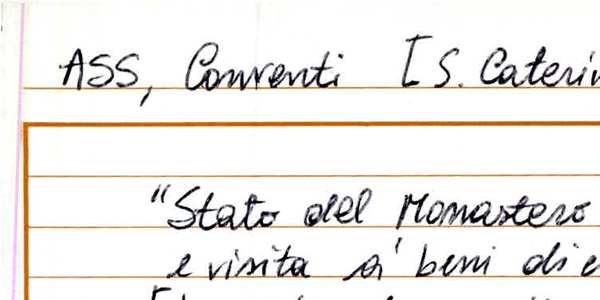 ASS, Conventi [S. Caterin
"Stato del Monastero
e visita a' beni di e